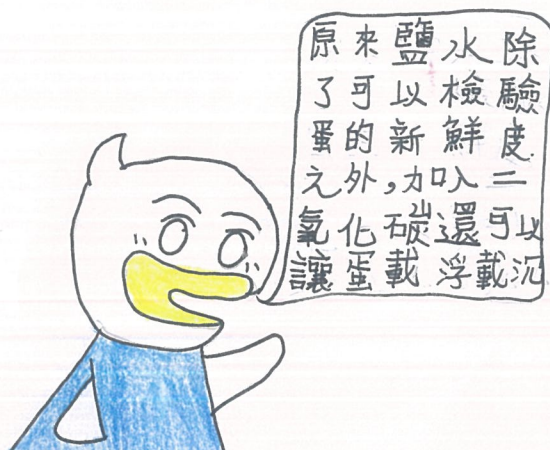 原來鹽水除
了可以檢驗
蛋的新鮮度
之外，加入二
氧化碳還可以
讓蛋載浮載沉